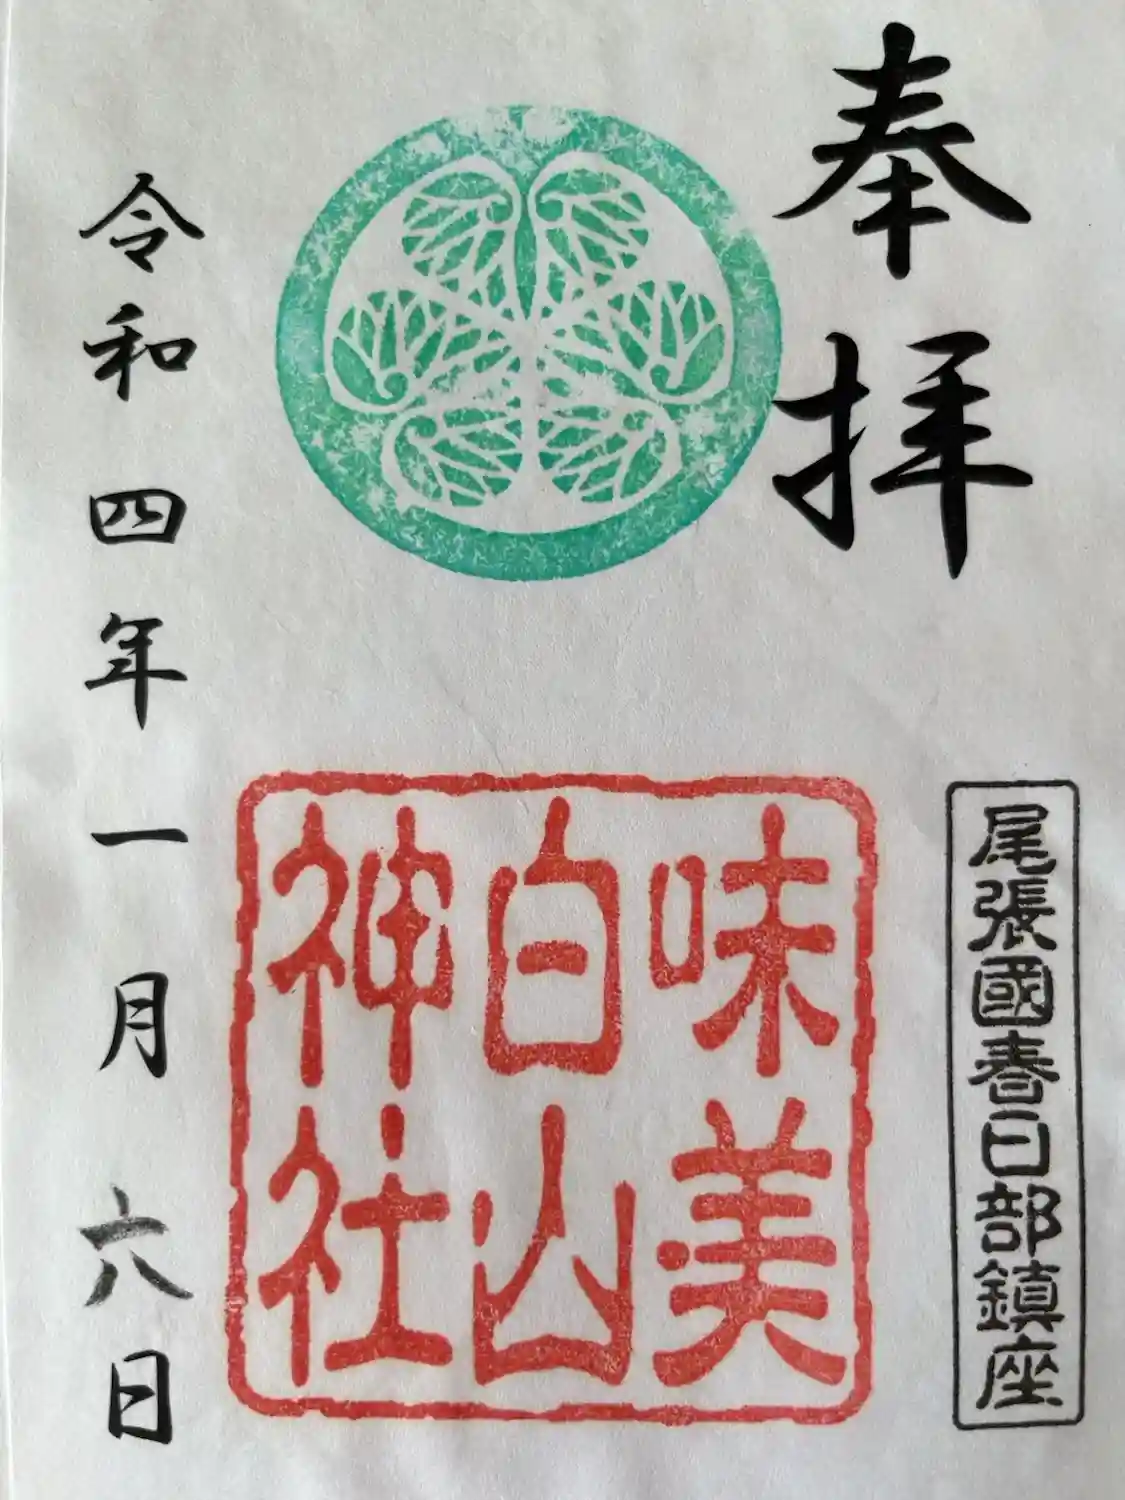 奉拝
尾張國春日部鎮座
味美
白山
神社
令和四年一月六日